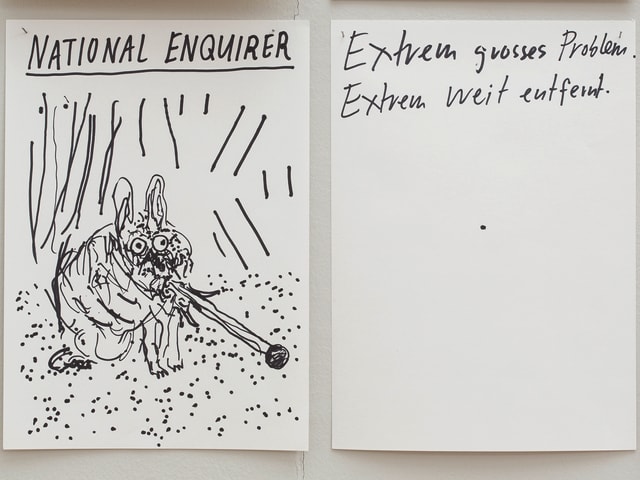 NATIONAL ENQUIRER
Extrem grosses Problem.
Extrem weit entfernt.